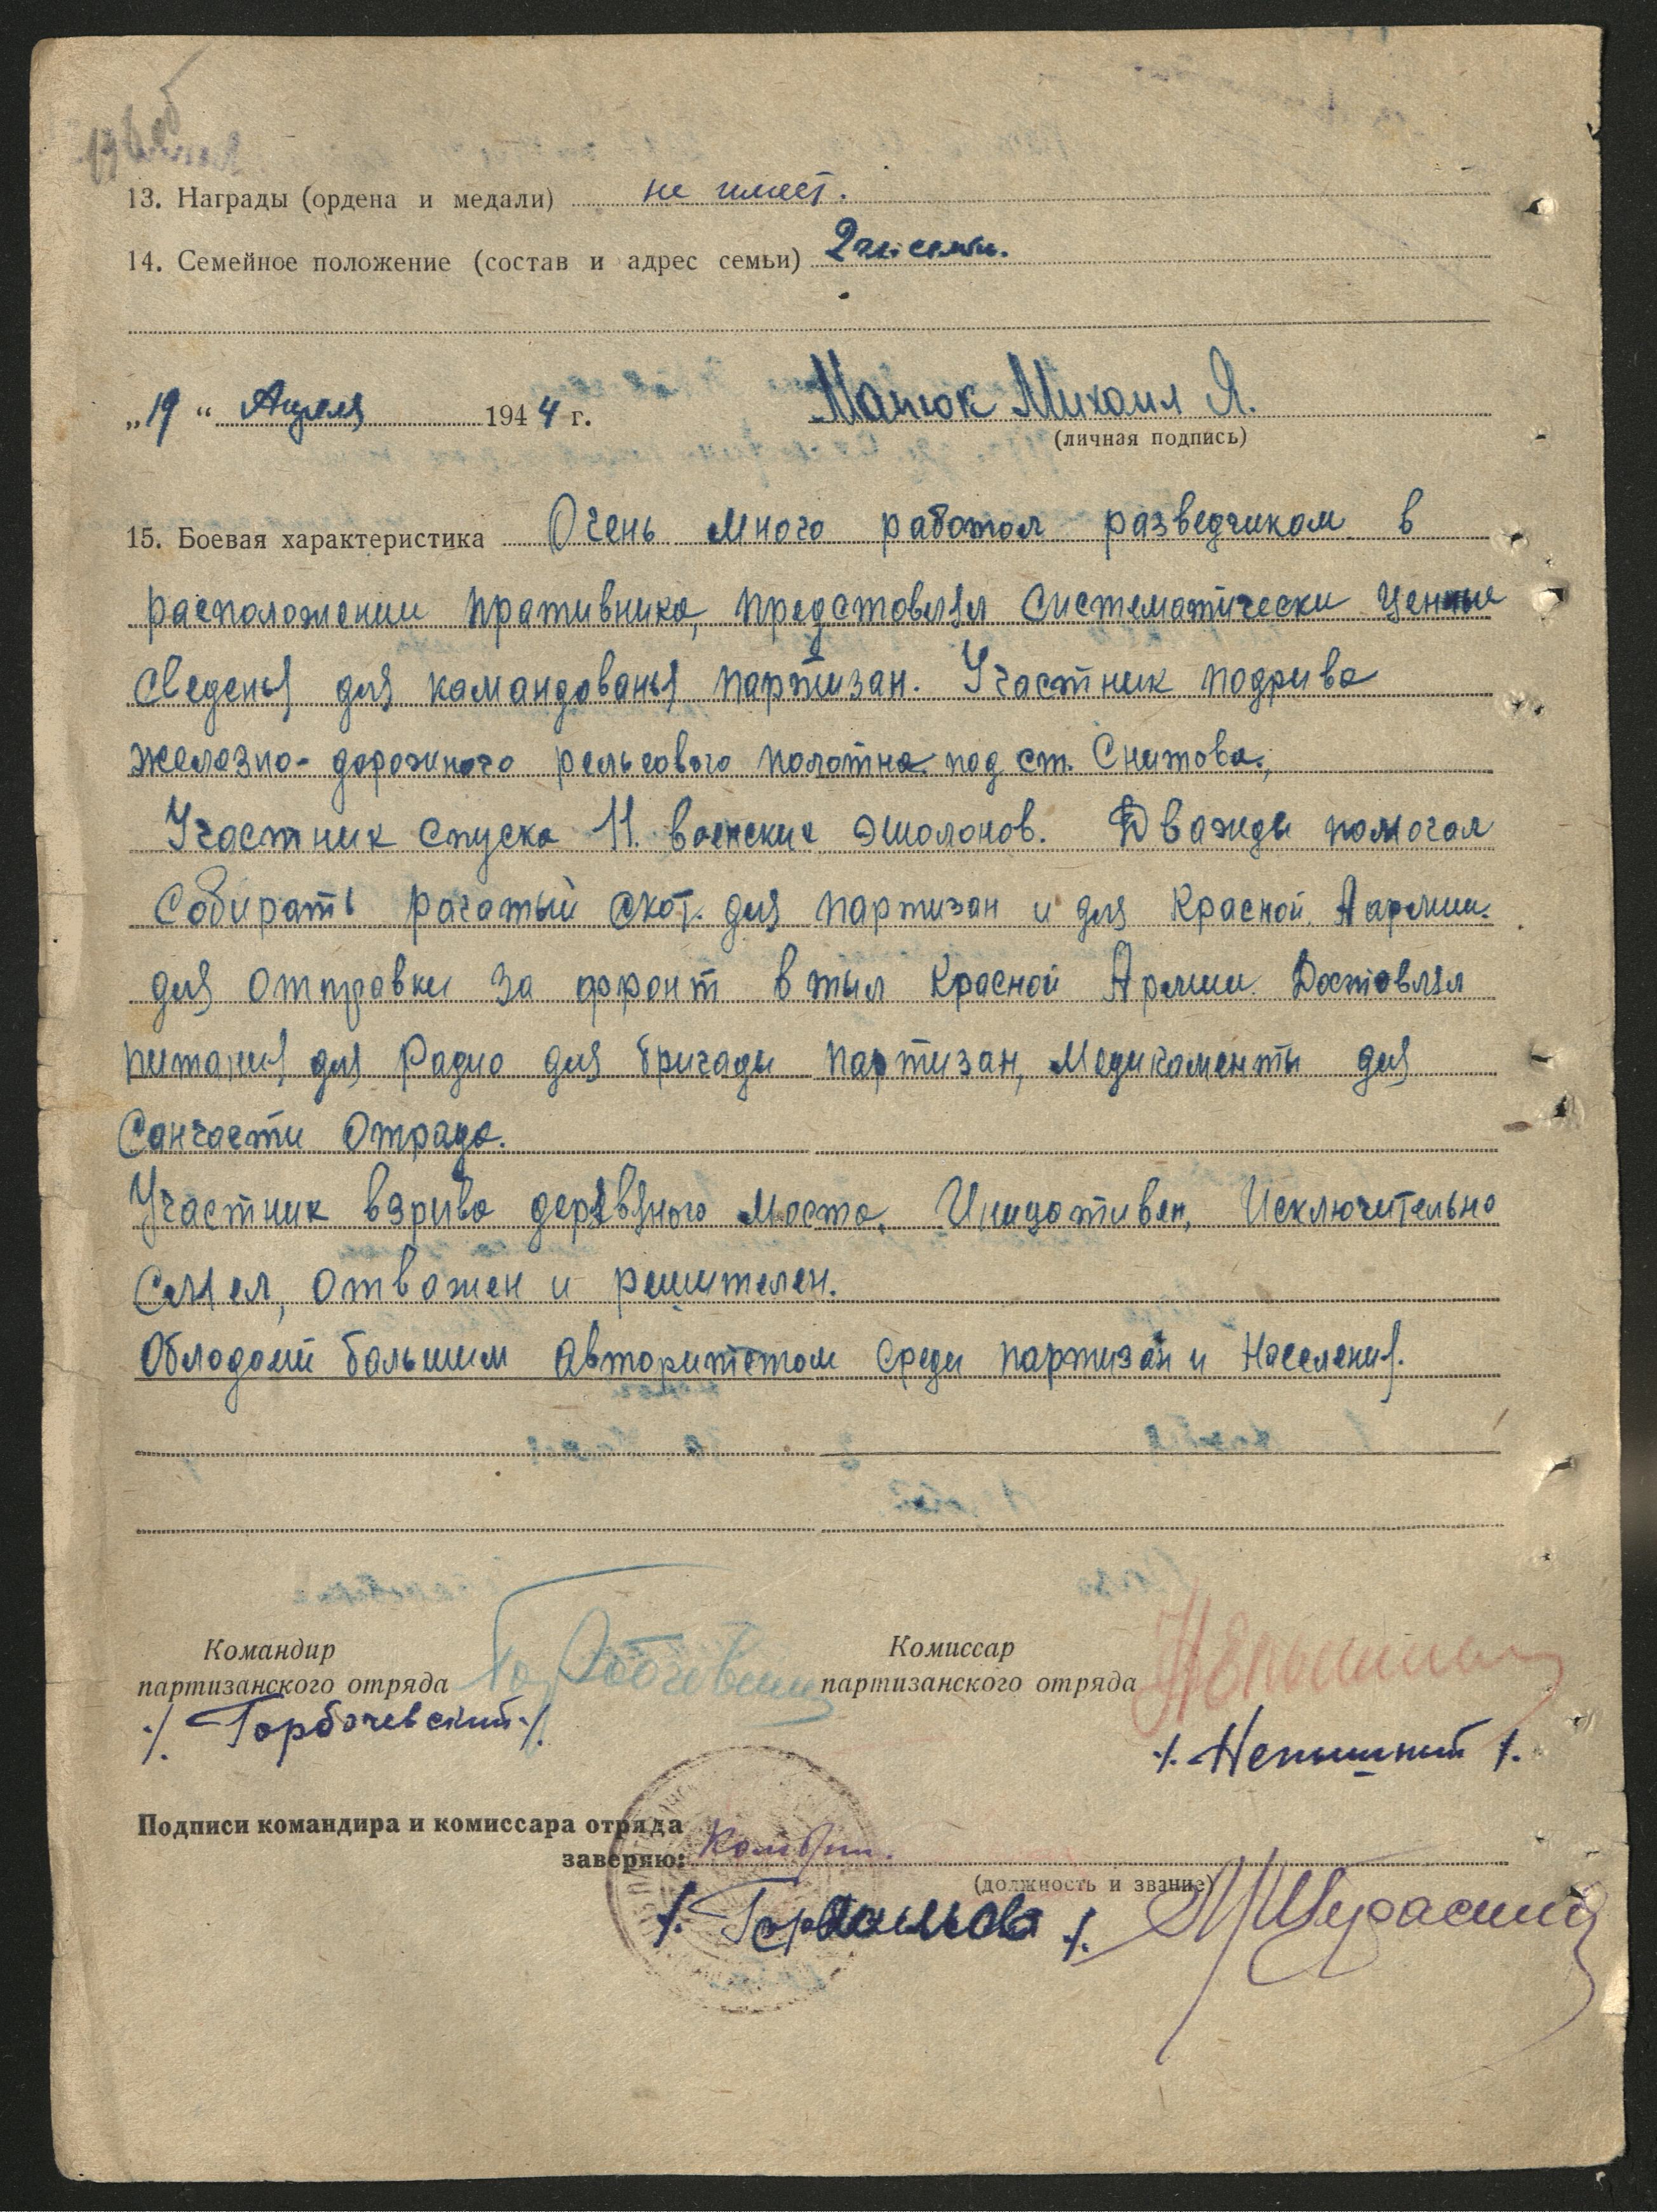 13. Награды (ордена и медали) не имеет.
14. Семейное положение (состав и адрес семьи) 2 чл. семьи.
„19“ Апреля 1944 г. Матюк Михаил Я.
(личная подпись)
15. Боевая характеристика Очень много работал разведчиком в
расположении пративника, предстовлял систематически ценные
сведенья для камандованья партизан. Участник подрыва
железно-дорожного рельсового полотна под ст. Снитова.,
Участник спуска 11. воинских эшолонов. Дважды помогал
Собирать рагатый скот. для партизан и для Красной. Аармии.
для отправки за фронт в тыл Красной Армии. Доставлял
питания для Радио для бригады партизан, Медикаменты для
Санчасти Отряда.
Участник взрыва дерявяного моста. Инициативен, Исключительно
Смел, отважен и решителен.
Облодоий большим авторитетом среди партизан и Населения.
Командир Комиссар
партизанского отряда партизанского отряда
/. Горбачевский ./ ./. Непышный /.
Подписи командира и комиссара отряда
заверяю: Комбриг.
(должность и звание)